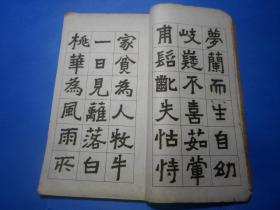 夢蘭而生自幼
岐嶷不喜茹葷
甫髫齔失怙恃
家貧為人牧牛
一日見離落白
桃華為風雨所